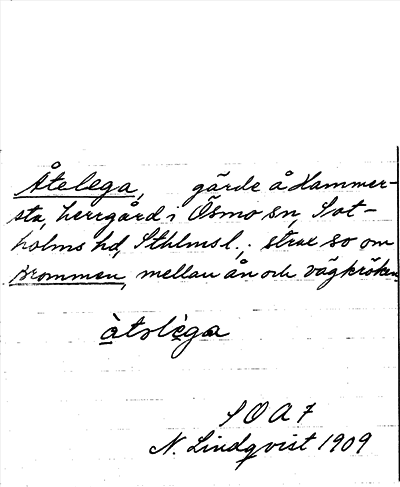 Åtelega, gärde å Hammer-
sta, herrgård i Ösmo sn, Sot-
holms hd, Sthlms l., strax so om
Brommen, mellan ån och vägkröken.
àtəlèga
S O A 7
N. Lindqvist 1909